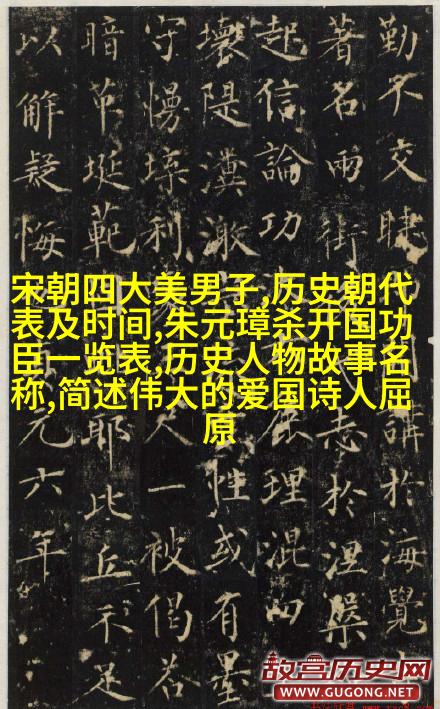 宋朝四大美男子,历史朝代
表及时间,朱元璋杀开国功
臣一览表,历史人物故事名
称,简述伟大的爱国诗人屈
原
勤不交睫 講於海覺
著名兩街 志於涅槃
起信論功 屈理混四
壞隄 激 性或有墨
守慢 利 一被偈若
暗 埏範 耶比丘示足
以解疑悔 元六年
故宫历史网
WWW.GUGONG.NET